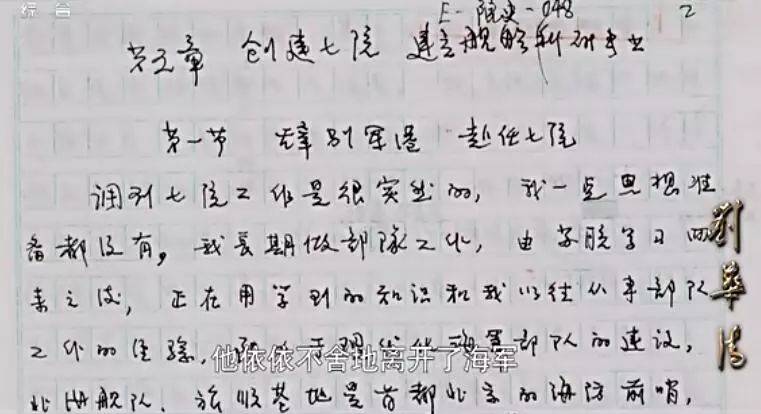 综合
E-院史-048
2
第五章 创建七院 建立舰船科研事业
第一节 辞别军港 赴任七院
调到七院工作是很突然的，我一点思想准
备都没有。我长期做部队工作，由学院学习回
来之后，正在用学到的知识和我以往从事部队
工作的经验，部队的建设，
他依依不舍地离开了海军
北海舰队、旅顺基地是首都北京的海防前哨，
刘华清